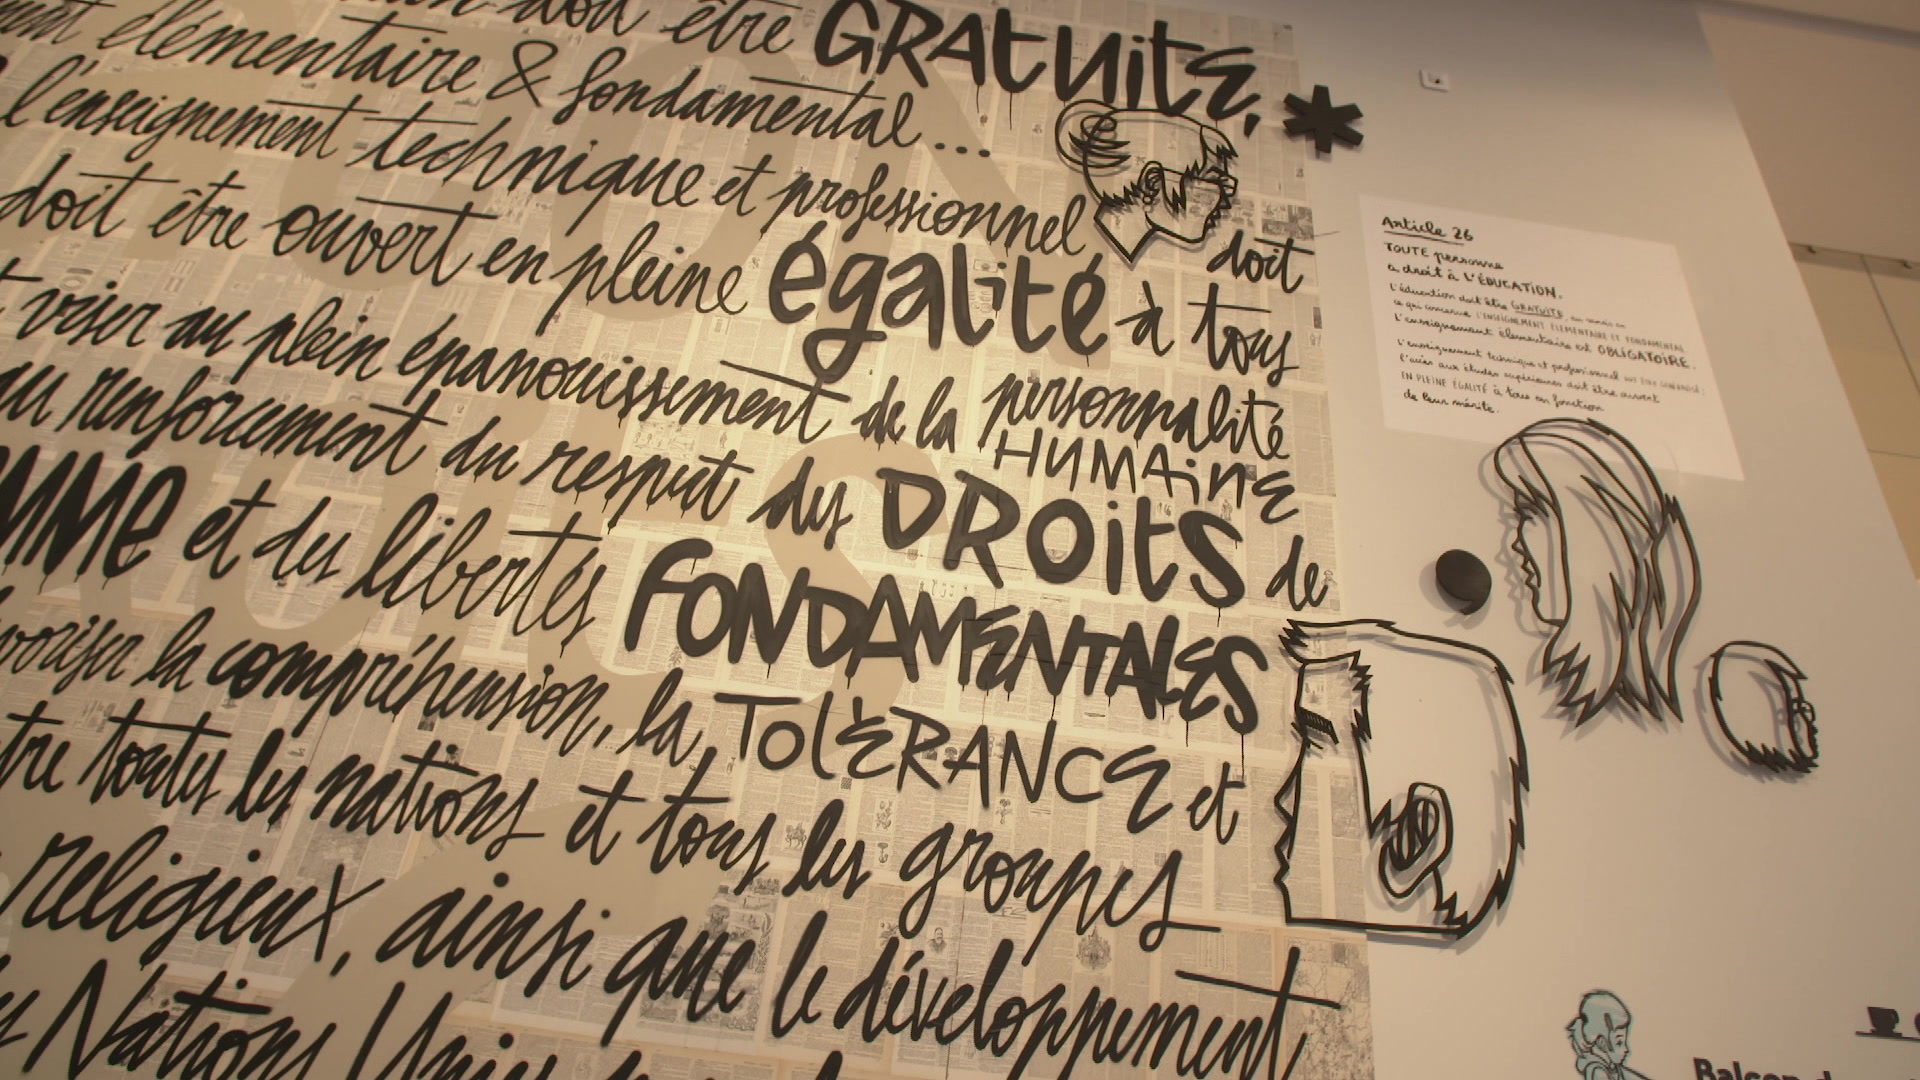 doit être GRATUITE,
élémentaire & fondamental...
l'enseignement technique et professionnel doit
doit être ouvert en pleine égalité à tous
viser au plein épanouissement de la personnalité
HUMAINE
au renforcement du respect des DROITS de
et des libertés FONDAMENTALES
la compréhension, la TOLÈRANCE et
toutes les nations et tous les groupes
religieux, ainsi que le développement
Nations Unies
Article 26
TOUTE personne
a droit à L'ÉDUCATION.
L'éducation doit être GRATUITE, au moins en
ce qui concerne L'ENSEIGNEMENT ÉLÉMENTAIRE ET FONDAMENTAL
L'enseignement élémentaire est OBLIGATOIRE.
L'enseignement technique et professionnel doit être généralisé;
l'accès aux études supérieures doit être ouvert
EN PLEINE ÉGALITÉ à tous en fonction
de leur mérite.
Balcon